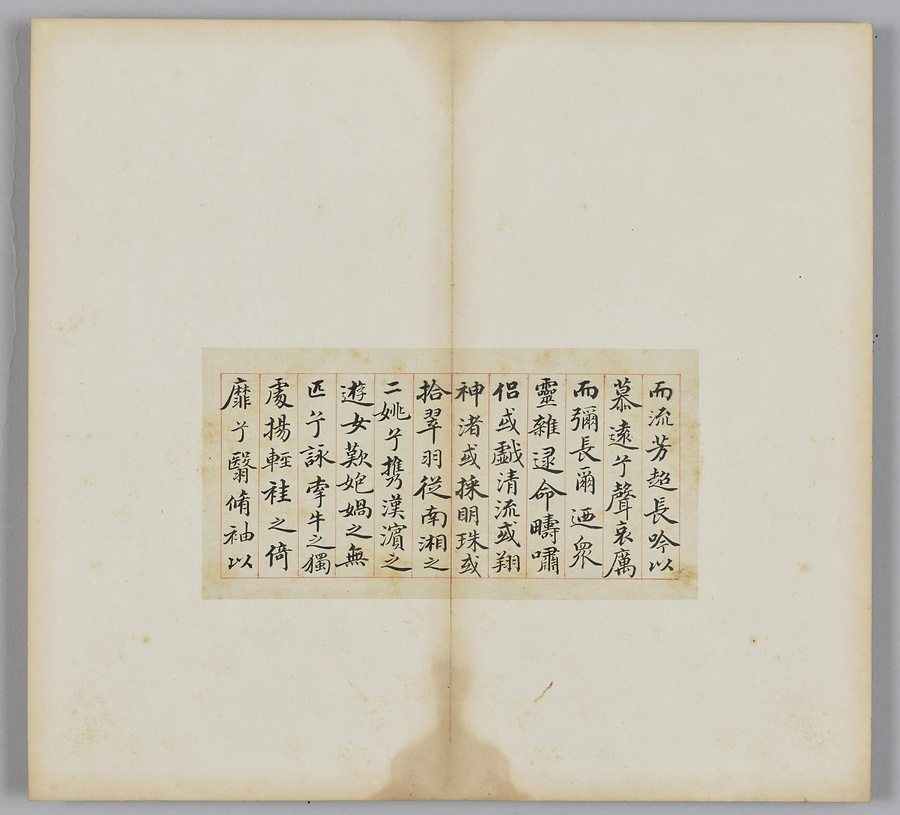 而流芳超長吟以
慕遠兮聲哀厲
而彌長爾迺衆
靈雜逯命疇嘯
侶或戲清流或翔
神渚或採明珠或
拾翠羽從南湘之
二姚兮攜漢濱之
遊女歎匏媧之無
匹兮詠牽牛之獨
處揚輕袿之倚
靡兮翳脩袖以